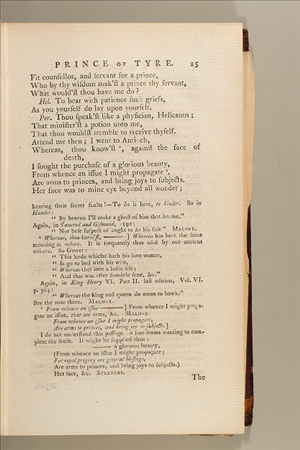 PRINCE OF TYRE. 25
Fit counsellor, and servant for a prince,
Who by thy wisdom mak'st a prince thy servant,
What would'st thou have me do?
Hel. To bear with patience such griefs,
As you yourself do lay upon yourself.
Per. Thou speak'st like a physician, Helicanus;
That minister'st a potion unto me,
That thou wouldst tremble to receive thyself.
Attend me then; I went to Antioch,
Whereas, thou know'st, against the face of
death,
I sought the purchase of a glorious beauty,
From whence an issue I might propagate,
Are arms to princes, and bring joys to subjects.
Her face was to mine eye beyond all wonder;
hearing their secret faults!—To let is here, to hinder. So in
Hamlet:
"By heaven I'll make a ghost of him that lets me."
Again, in Tancred and Gismund,
"Nor base suspect of ought to let his suit." MALONE.
Whereas, thou know'st,] Whereas has here the same
meaning as where. It is frequently thus used by our ancient
writers. So
"This lorde whiche hath his love wonne,
"Is go to bed with his wife,
"Whereas thei lede a lustie life;
"And that was after &c."
Again, in King Henry VI. Part II. last edition, Vol. VI.
p.
"Whereas the king and queen do mean to hawk."
See the note there. MALONE.
From whence an issue] From whence I might propa-
gate an issue, that are arms, &c. MALONE.
From whence an issue I might propagate,
Are arms to princes, and bring joy to subjects.]
I do not understand this passage. A line seems wanting to com-
plete the sense. It might be supplied thus:
a glorious beauty,
(From whence an issue I might propagate;
For royal progeny are general blessings,
Are arms to princes, and bring joys to subjects.)
Her face, &c. STEEVENS.
The